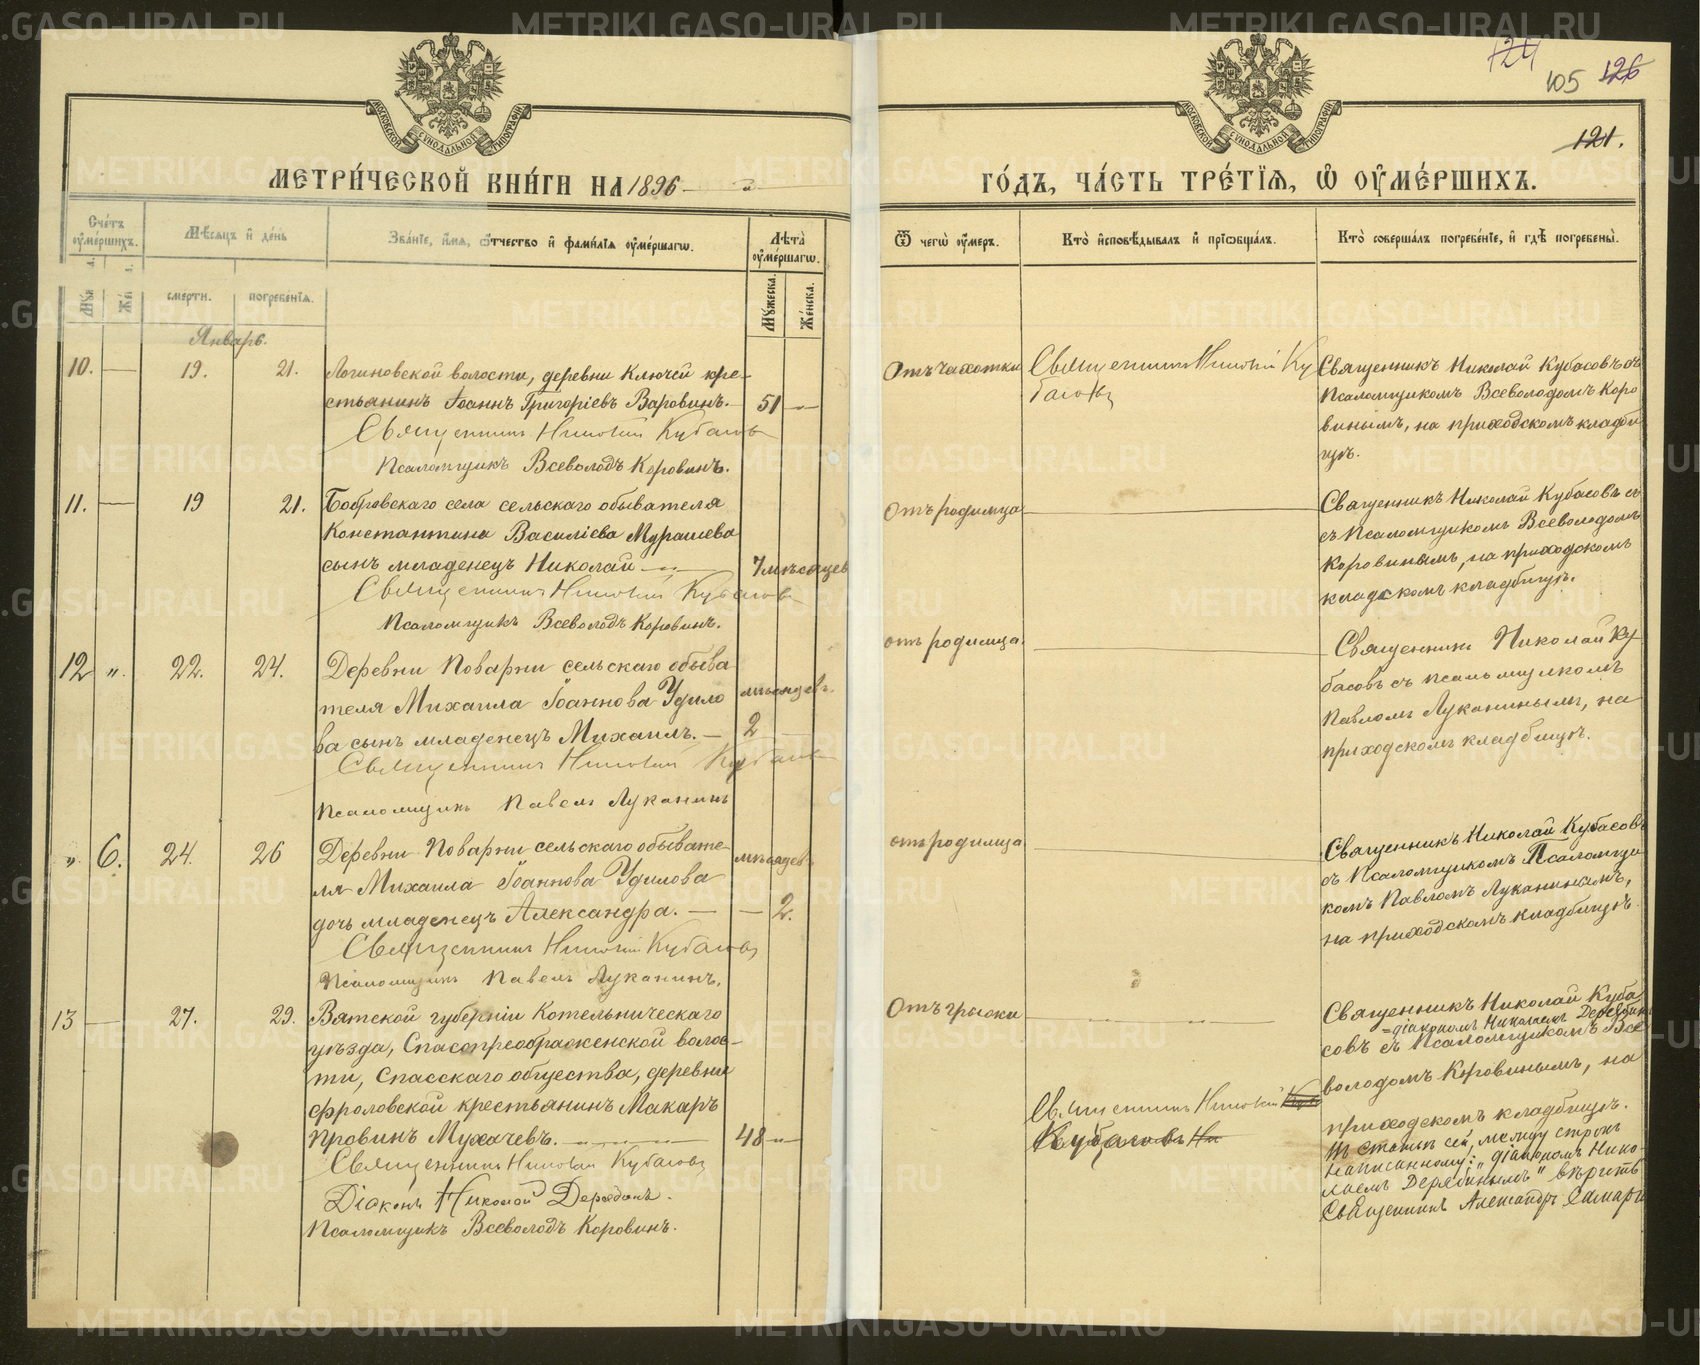 METRIKI.GASO-URAL.RU
124
105 126
121.
МОСКОВСКОЙ СѴНОДАЛЬНОЙ ТИПОГРАФІИ
МОСКОВСКОЙ СѴНОДАЛЬНОЙ ТИПОГРАФІИ
МЕТРИ́ЧЕСКОЙ КНИ́ГИ НА 1896
ГО́ДЪ, ЧА́СТЬ ТРЕ́ТІѦ, Ѿ ОУ҆МЕ́РШИХЪ.
Сче́тъ оу҆ме́ршихъ.
Мѣ́сѧцъ и҆ де́нь
Зва́нїе, и҆́мѧ, ѻ҆́тчество и҆ фами́лїѧ оу҆ме́ршагѡ.
Лѣ́та оу҆ме́ршагѡ.
Ѿ чегѡ̀ оу҆́меръ.
Кто̀ и҆сповѣ́дывалъ и҆ прїѡбща́лъ.
Кто̀ соверша́лъ погребе́нїе, и҆ гдѣ̀ погребены̀.
сме́рти.
погребе́нїѧ.
Мꙋ́жеска.
Же́нска.
Январь.
10. — 19. 21.
Логиновской волости, деревни Ключей кре-
стьянинъ Іоаннъ Григоріевъ Варовинъ. — 51 —
Священникъ Николай Кубасовъ
Псаломщикъ Всеволодъ Коровинъ.
Отъ чахотки
Священникъ Николай Ку
басовъ
Священникъ Николай Кубасовъ съ
Псаломщикомъ Всеволодомъ Коро
винымъ, на приходскомъ кладби
щѣ.
11. — 19 21.
Бобровскаго села сельскаго обывателя
Константина Василіева Мурашева
сынъ младенецъ Николай — 7 мѣсяцев
Священникъ Николай Кубасовъ
Псаломщикъ Всеволодъ Коровинъ.
Отъ родимца
Священникъ Николай Кубасовъ съ
съ Псаломщикомъ Всеволодомъ
Коровинымъ, на приходскомъ
кладскомъ кладбищѣ.
12 „ 22. 24.
Деревни Поварни сельскаго обыва
теля Михаила Іоаннова Удило
ва сынъ младенецъ Михаилъ. —
мѣсяцевъ.
2 —
Священникъ Николай Кубасовъ
Псаломщикъ Павелъ Луканинъ
отъ родимца.
Священникъ Николай Ку
басовъ съ псаломщикомъ
Павломъ Луканинымъ, на
приходскомъ кладбищѣ.
„ 6. 24. 26
Деревни Поварни сельскаго обывате-
ля Михаила Іоаннова Удилова
дочь младенецъ Александра. —
мѣсяцевъ
— 2.
Священникъ Николай Кубасовъ
Псаломщикъ Павелъ Луканинъ.
отъ родимца
Священникъ Николай Кубасовъ
съ Псаломщикомъ Псаломщи
комъ Павломъ Луканинымъ,
на приходскомъ кладбищѣ.
13 — 27. 29.
Вятской губерніи Котельническаго
уѣзда, Спасопреображенской волос-
ти, Спасскаго общества, деревни
Фроловской крестьянинъ Макаръ
Провинъ Мухачевъ. — 48 —
Священникъ Николай Кубасовъ
Діаконъ Николай Дерябинъ.
Псаломщикъ Всеволодъ Коровинъ.
Отъ грыжи
Священникъ Николай
Кубасовъ Ни
Священникъ Николай Куба
=діакономъ Николаемъ Дерябин
совъ съ Псаломщикомъ Все
володомъ Коровинымъ, на
приходскомъ кладбищѣ.
Въ статьѣ сей, между строкъ
написанному: „діакономъ Нико-
лаемъ Дерябинымъ" вѣрить
Священникъ Александръ Самари